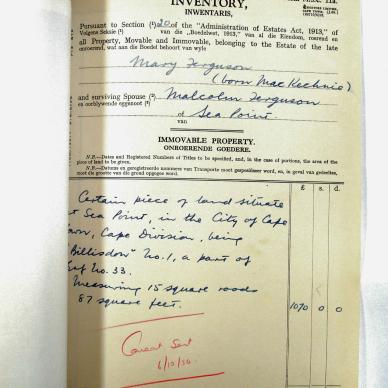 INVENTORY,
INVENTARIS,
Pursuant to Section (¹) 20 of the "Administration of Estates Act, 1913," of
Volgens Seksie (¹) van die „Boedelwet, 1913,” van al die Eiendom, roerend en
all Property, Movable and Immovable, belonging to the Estate of the late
onroerend, wat aan die Boedel behoort van wyle
Mary Ferguson
(born MacKechnie)
and surviving Spouse (²) Malcolm Ferguson
en oorblywende eggenoot (²)
of Sea Point.
van
IMMOVABLE PROPERTY.
ONROERENDE GOEDERE.
N.B.—Dates and Registered Numbers of Titles to be specified, and, in the case of portions, the area of the
piece of land to be given.
N.B.—Datums en geregistreerde nommers van Transporte moet gespesifiseer word, en in geval van gedeeltes,
moet die grootte van die grond opgegee word.
£ s. d.
Certain piece of land situate
at Sea Point, in the City of Cape
Town, Cape Division, being
"Billisdon" No. 1, a part of
Erf No. 33.
Measuring 15 square roods
87 square feet. 1070 0 0
6/10/36